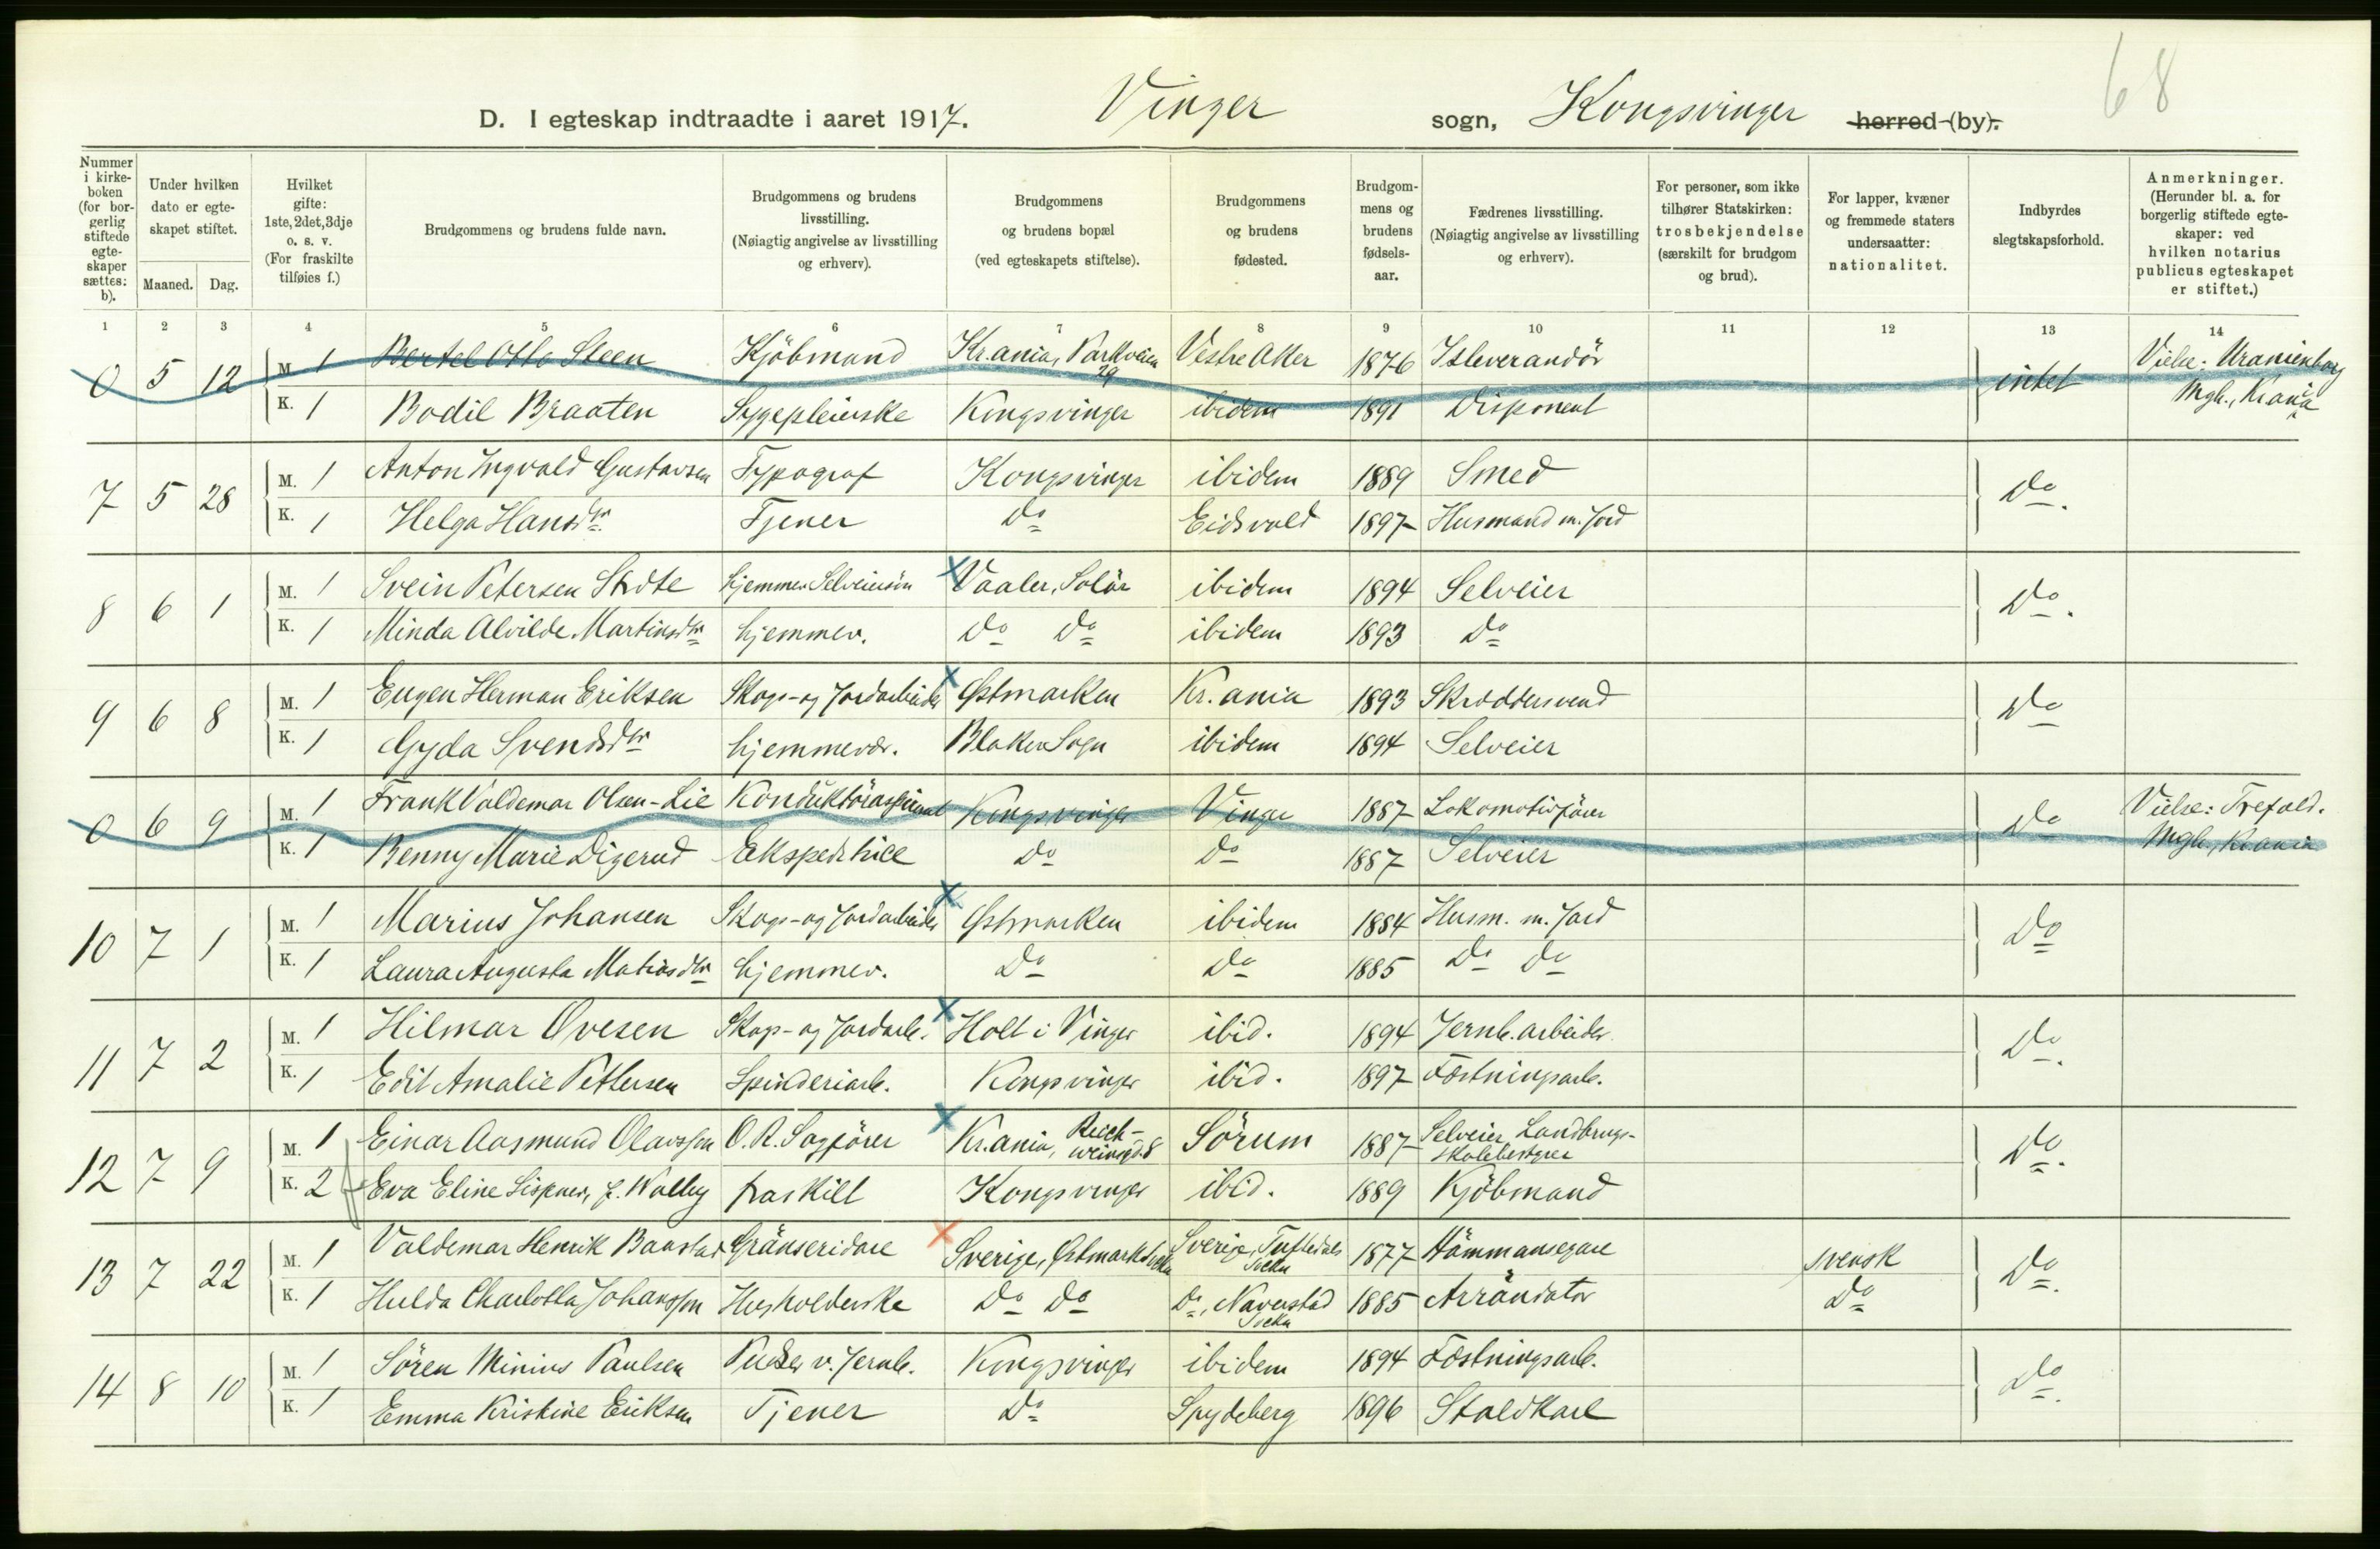 68
D. I egteskap indtraadte i aaret 1917. Vinger sogn, Kongsvinger herred (by).
Nummer i kirke-boken (for bor-gerlig stiftede egte-skaper sættes: b).
Under hvilken dato er egte-skapet stiftet.
Maaned. Dag.
Hvilket gifte: 1ste, 2det, 3dje o. s. v. (For fraskilte tilføies f.)
Brudgommens og brudens fulde navn.
Brudgommens og brudens livsstilling. (Nøiagtig angivelse av livsstilling og erhverv).
Brudgommens og brudens bopæl (ved egteskapets stiftelse).
Brudgommens og brudens fødested.
Brudgom-mens og brudens fødsels-aar.
Fædrenes livsstilling. (Nøiagtig angivelse av livsstilling og erhverv).
For personer, som ikke tilhører Statskirken: trosbekjendelse (særskilt for brudgom og brud).
For lapper, kvæner og fremmede staters undersaatter: nationalitet.
Indbyrdes slegtskapsforhold.
Anmerkninger. (Herunder bl. a. for borgerlig stiftede egte-skaper: ved hvilken notarius publicus egteskapet er stiftet.)
1 2 3 4 5 6 7 8 9 10 11 12 13 14
0 5 12 M. 1 Bertel Otto Steen Kjöbmand Kr.ania, Parkveien 29 Vestre Aker 1876 Isleverandör intet Vielse: Uranienborg
K. 1 Bodil Braaten Sygepleierske Kongsvinger ibidem 1891 Disponent Mgh., Kr.ania
7 5 28 M. 1 Anton Ingvald Gustavsen Typograf Kongsvinger ibidem 1889 Smed Do.
K. 1 Helga Hansdtr Tjener Do Eidsvold 1897 Husmand m. Jord
8 6 1 M. 1 Svein Petersen hjemmev. Selveiersön Vaaler, Solör ibidem 1894 Selveier Do.
K. 1 Minda Alvilde Martinsdtr hjemmev. Do Do ibidem 1893 Do
9 6 8 M. 1 Eugen Herman Eriksen Skogs- og Jordarbeider Østmarken Kr.ania 1893 Skræddersvend Do
K. 1 Gyda Svendsdtr hjemmevær. Blaker Sogn ibidem 1894 Selveier
0 6 9 M. 1 Frank Valdemar Olsen-Lie Konduktöraspirant Kongsvinger Vinger 1887 Lokomotivförer Do Vielse: Trefold.
K. 1 Benny Marie Digerud Ekspeditrice Do Do 1887 Selveier Mgh., Kr.ania
10 7 1 M. 1 Marius Johansen Skogs- og Jordarbeider Østmarken ibidem 1884 Husm. m. Jord Do
K. 1 Laura Augusta Matiasdtr hjemmev. Do Do 1885 Do Do
11 7 2 M. 1 Hilmar Ovesen Skogs- og Jordarb. Holt i Vinger ibid. 1894 Jernb. arbeider Do.
K. 1 Edit Amalie Pettersen Spinderiarb. Kongsvinger ibid. 1897 Fæstningsarb.
12 7 9 M. 1 Einar Aasmund Olavsson O. R. Sagförer Kr.ania, 8 Sörum 1887 Selveier, Landbrugs-skolebestyrer Do.
K. 2 f Eva Eline f. Walby fraskilt Kongsvinger ibid. 1889 Kjöbmand
13 7 22 M. 1 Valdemar Henrik Gränseridare Sverige, Östmarks Socken Sverige, Socken 1877 Hämmansegare svensk Do.
K. 1 Hulda Charlotta Johansson Husholderske Do Do Do, Naverstad Socken 1885 Arrändator Do
14 8 10 M. 1 Sören Minius Paulsen Pudser v. Jernb. Kongsvinger ibidem 1894 Fæstningsarb. Do.
K. 1 Emma Kristine Eriksen Tjener Do Spydeberg 1896 Staldkarl